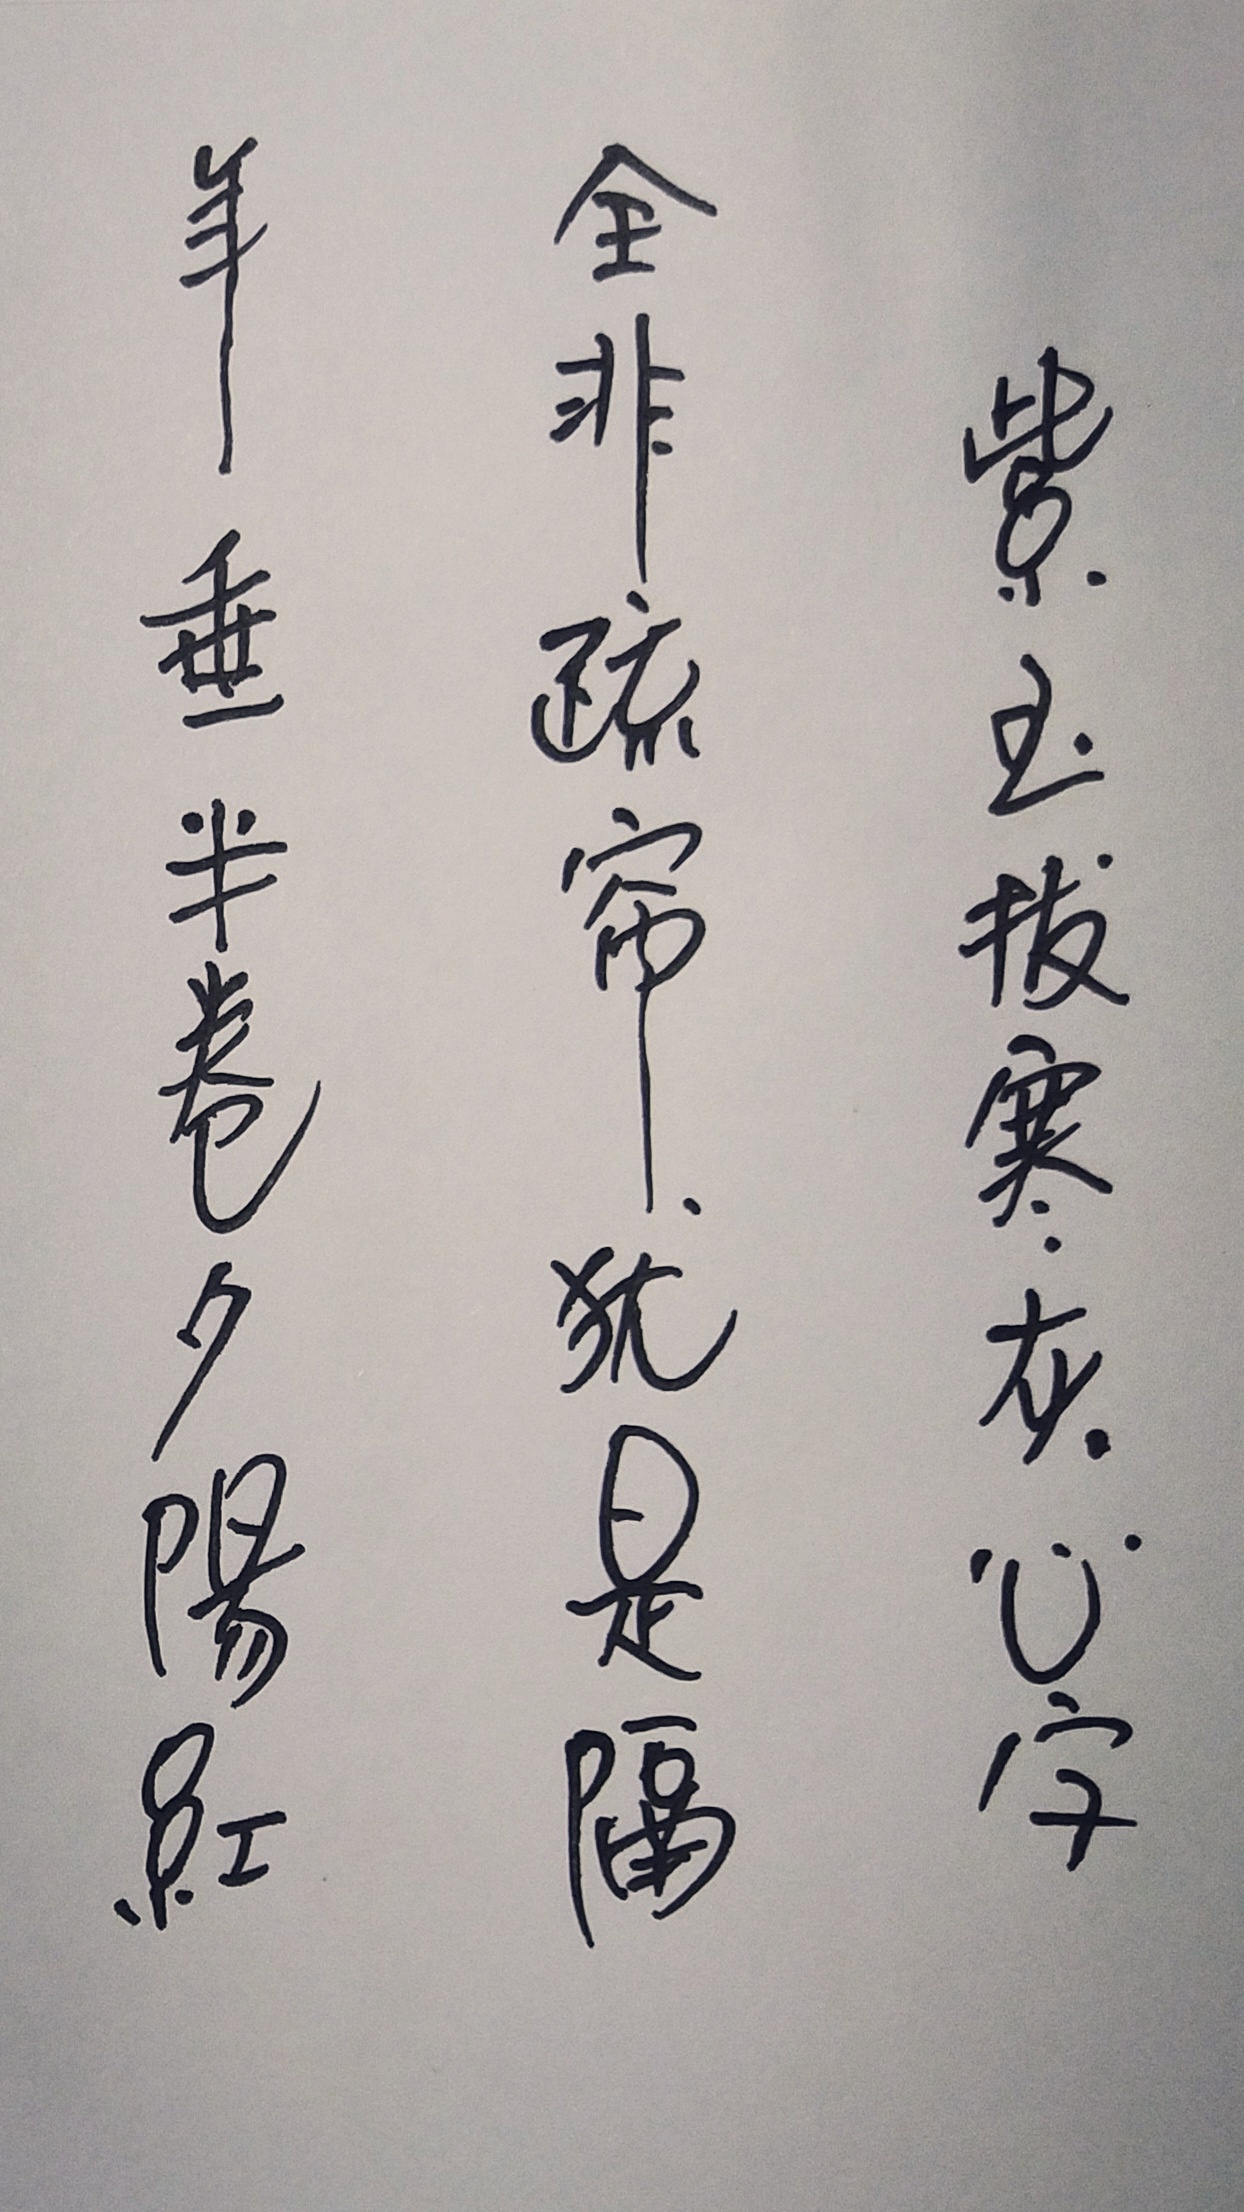 紫玉拨寒灰心字
全非疏帘犹是隔
年垂半卷夕陽紅